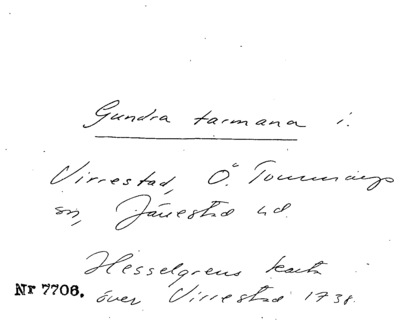 Gundra tarmana i.
Virrestad, Ö. Tommarps
sn, Järrestad hd.
Hesselgrens karta
Nr 7706. över Virrestad 1738.